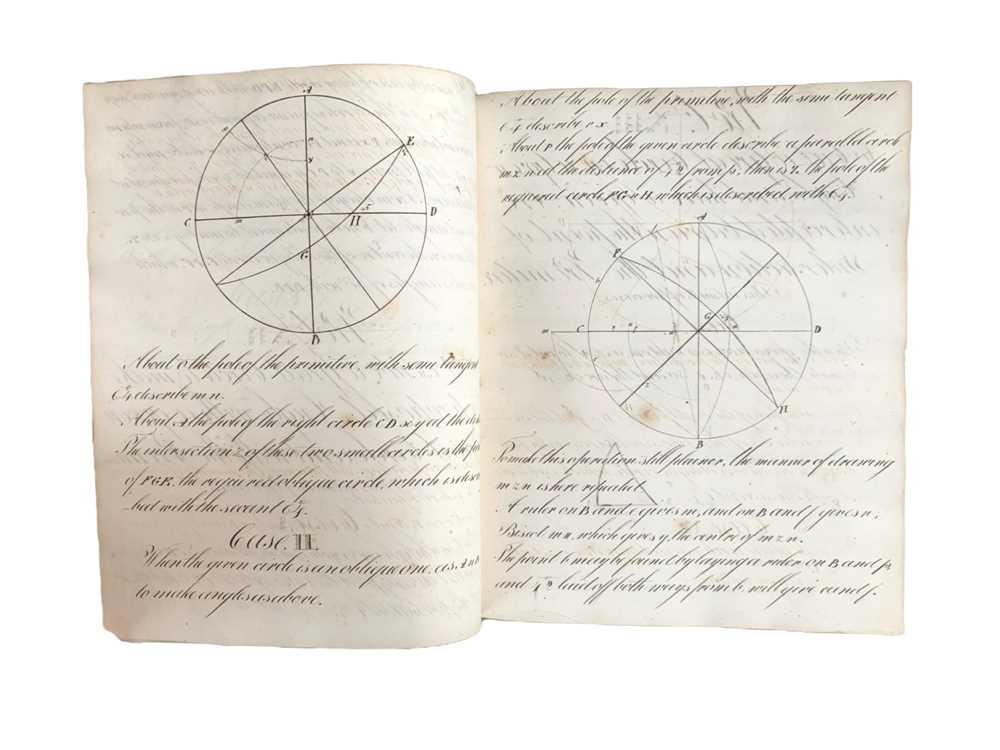 A
E
C
m
H
D
G
B
About O the pole of the primitive, with semi tangent
describe m n.
About A the pole of the right circle C D at the
The intersection z of these two small circles is the
of F G E, the required oblique circle, which is
bed with the secant
Case. II.
When the given circle is an oblique one, as A n B
to make angles as above.
About the pole of the primitive, with the semi-tangent
describe
About P the pole of the given circle describe a parallel circle
m z n at the distance of from p, then is the pole of the
required circle F G n H which is described with
A
F
m
C
G
D
H
B
To make this operation still plainer, the manner of drawing
m z n is here repeated.
A ruler on B and e gives m, and on B and f gives n,
Bisect m n, which gives y, the centre of m z n.
The point b may be found by laying a ruler on B and p
and laid off both ways from b will give e and f.